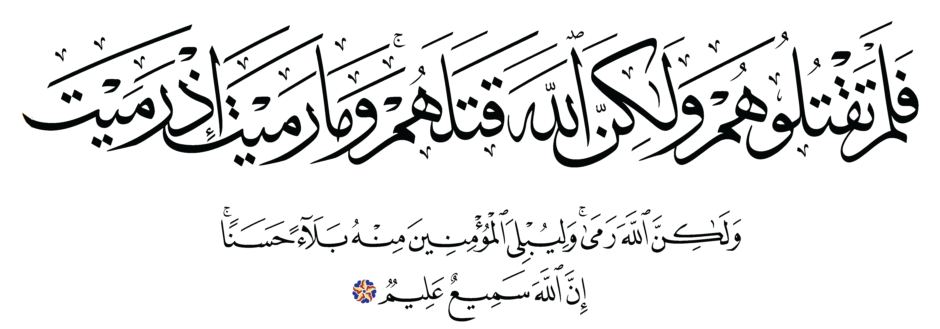 فَلَمْ تَقْتُلُوهُمْ وَلَٰكِنَّ ٱللَّهَ قَتَلَهُمْ ۚ وَمَا رَمَيْتَ إِذْ رَمَيْتَ
وَلَٰكِنَّ ٱللَّهَ رَمَىٰ ۚ وَلِيُبْلِىَ ٱلْمُؤْمِنِينَ مِنْهُ بَلَآءً حَسَنًا ۚ
إِنَّ ٱللَّهَ سَمِيعٌ عَلِيمٌ